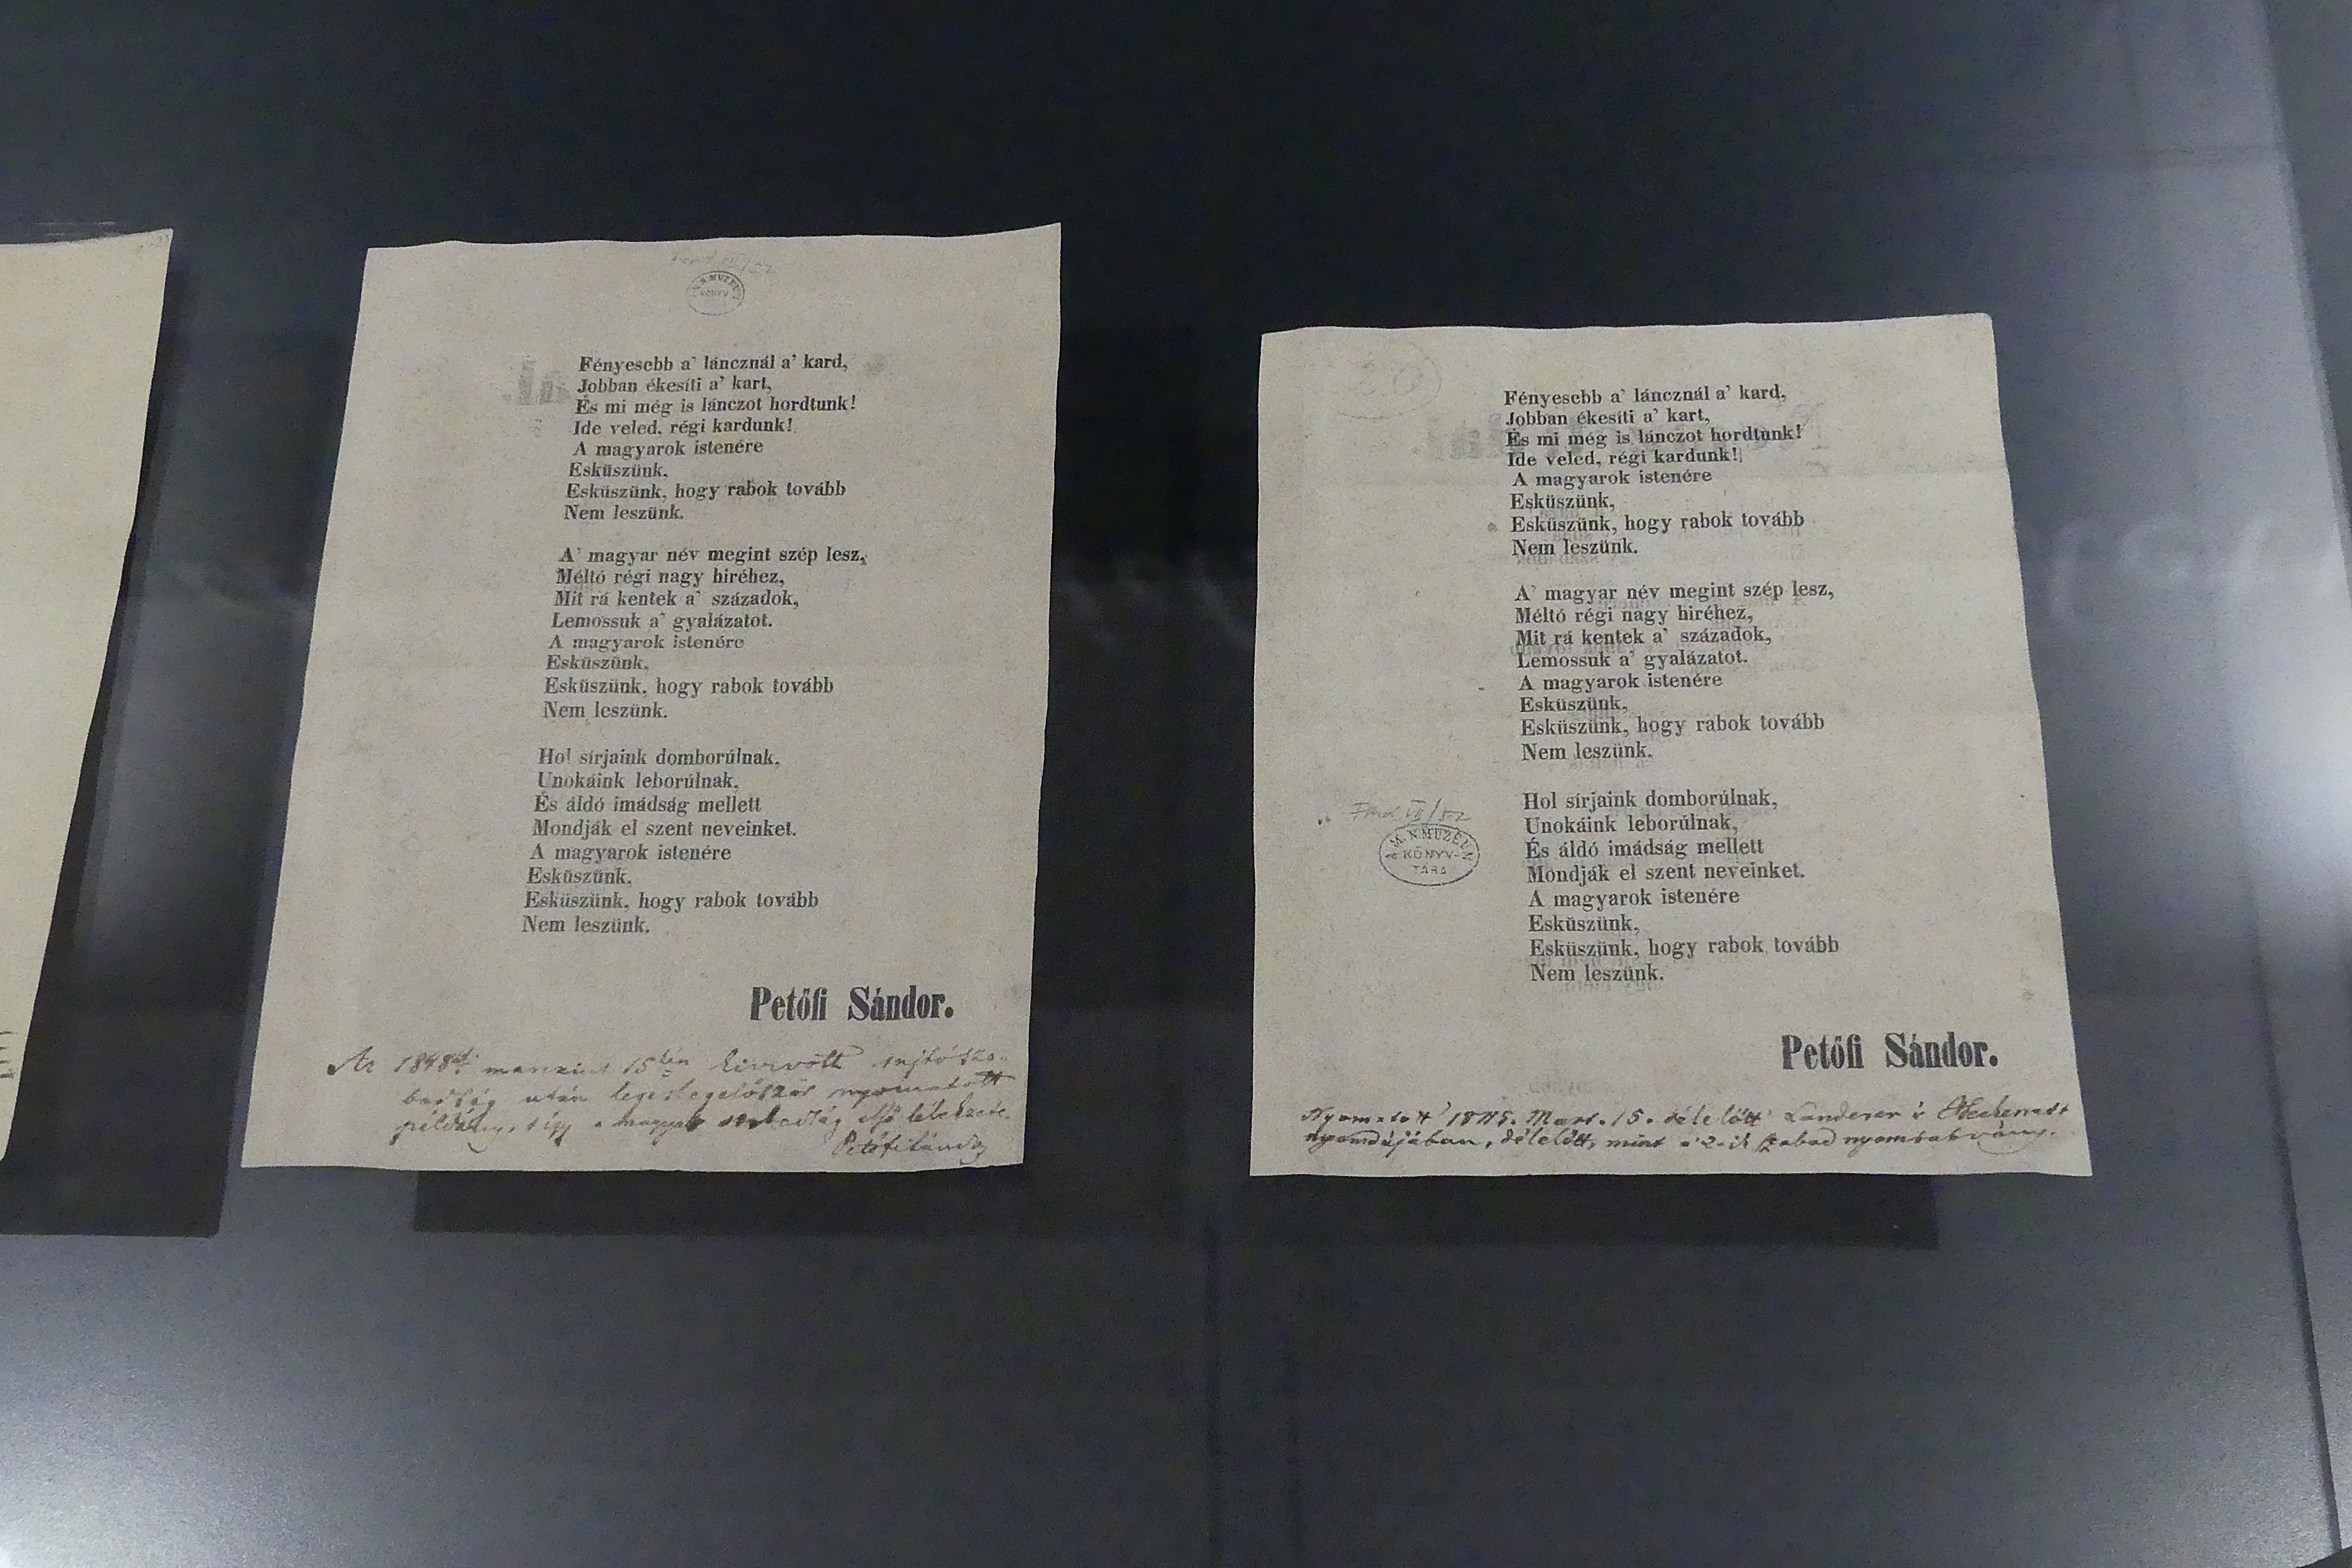 Fényesebb a' láncznál a' kard,
Jobban ékesíti a' kart,
És mi még is lánczot hordtunk!
Ide veled, régi kardunk!
A magyarok istenére
Esküszünk,
Esküszünk, hogy rabok tovább
Nem leszünk.
A' magyar név megint szép lesz,
Méltó régi nagy hiréhez,
Mit rá kentek a' századok,
Lemossuk a' gyalázatot.
A magyarok istenére
Esküszünk,
Esküszünk, hogy rabok tovább
Nem leszünk.
Hol sírjaink domborúlnak,
Unokáink leborúlnak,
És áldó imádság mellett
Mondják el szent neveinket.
A magyarok istenére
Esküszünk,
Esküszünk, hogy rabok tovább
Nem leszünk.
Petőfi Sándor.
Az 1848 15 kivivott sajtósza-
badság után legeslegelőször nyomatott
példány, s így a magyar szabadság első lélekzete.
Petőfi Sándor
Fényesebb a' láncznál a' kard,
Jobban ékesíti a' kart,
És mi még is lánczot hordtunk!
Ide veled, régi kardunk!
A magyarok istenére
Esküszünk,
Esküszünk, hogy rabok tovább
Nem leszünk.
A' magyar név megint szép lesz,
Méltó régi nagy hiréhez,
Mit rá kentek a' századok,
Lemossuk a' gyalázatot.
A magyarok istenére
Esküszünk,
Esküszünk, hogy rabok tovább
Nem leszünk.
Hol sírjaink domborúlnak,
Unokáink leborúlnak,
És áldó imádság mellett
Mondják el szent neveinket.
A magyarok istenére
Esküszünk,
Esküszünk, hogy rabok tovább
Nem leszünk.
M. N. MUZEUM
KÖNYV-
TÁRA
Petőfi Sándor.
Nyomatott Mart. 15. délelőtt Landerer és Heckenast
nyomdájában, délelőtt, mint a' 2-ik szabad nyomtatvány.